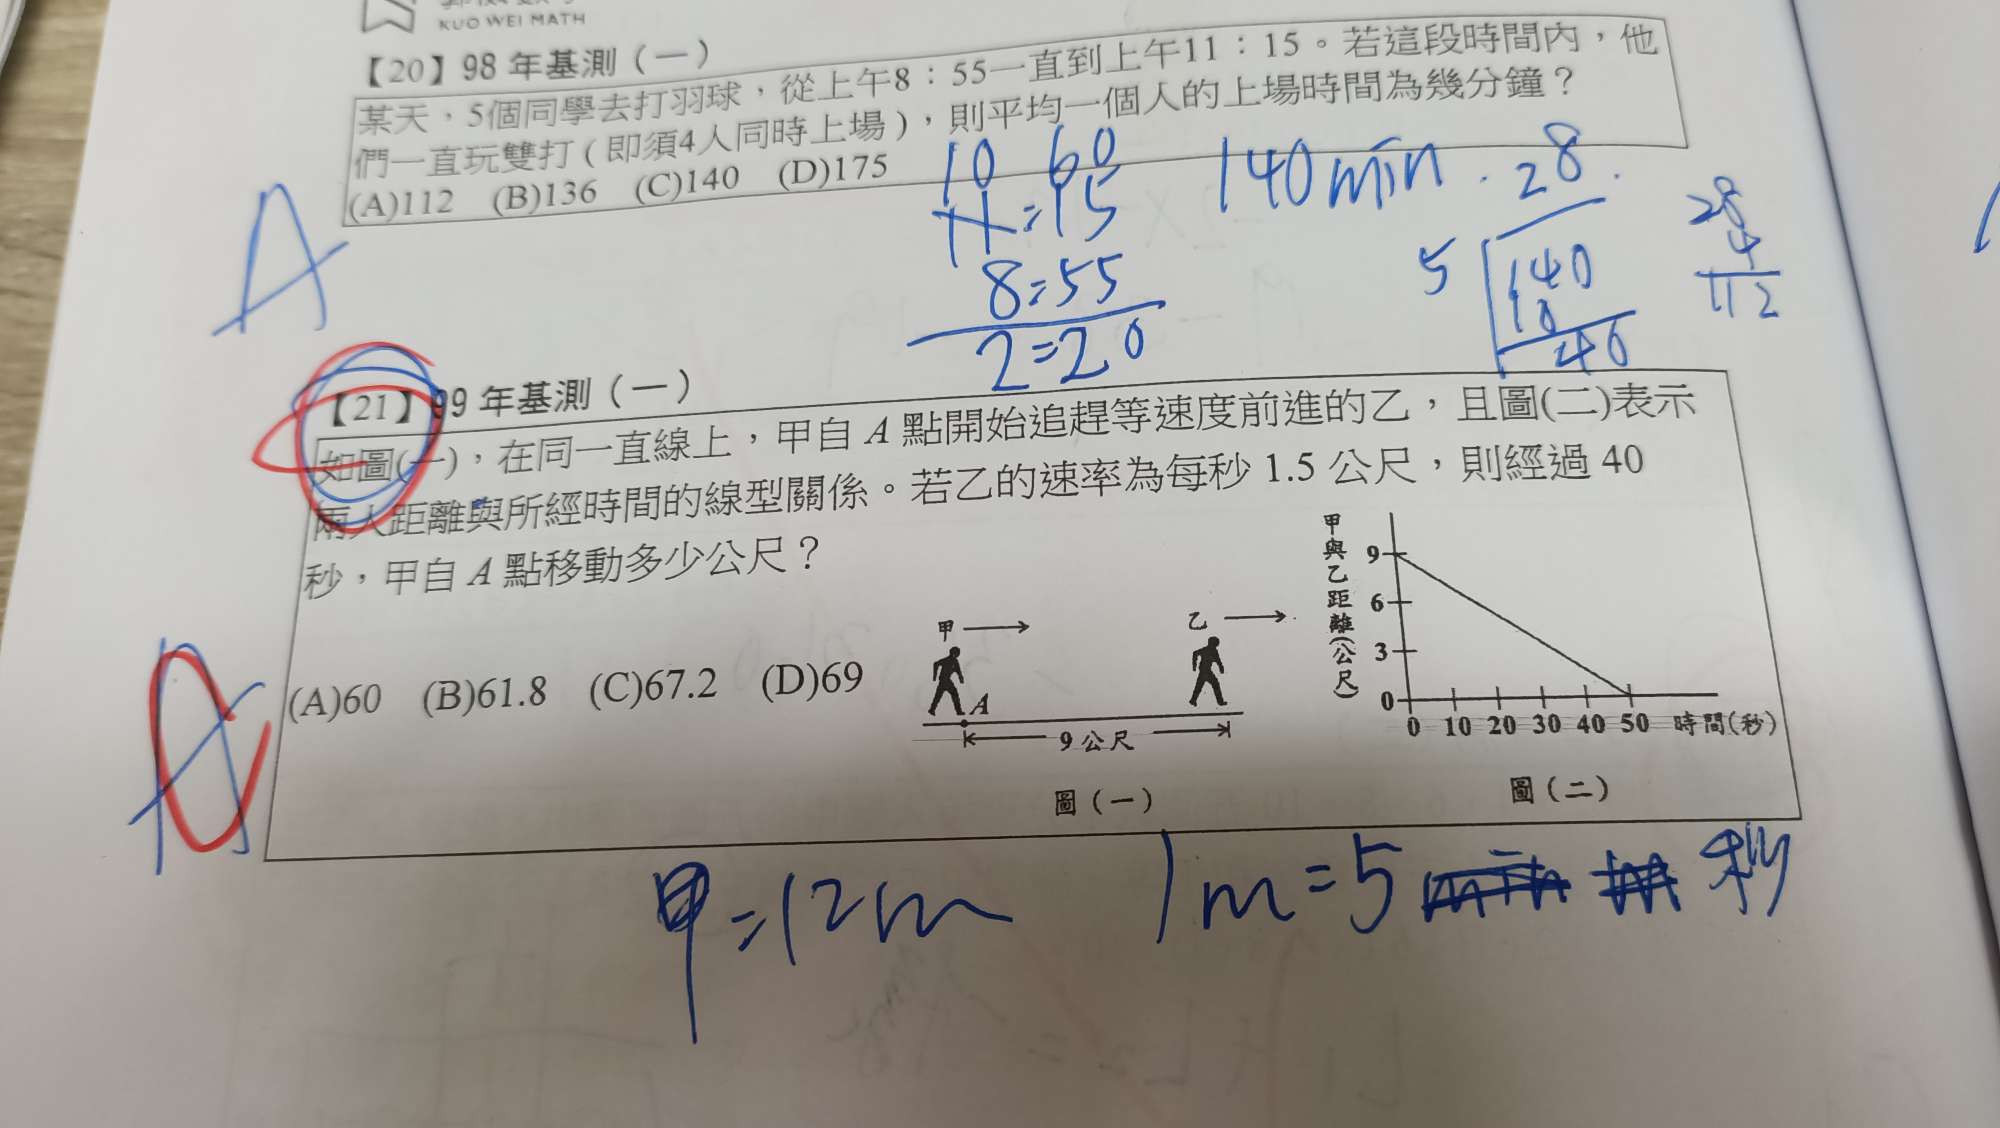 KUO WEI MATH
【20】98 年基測（一）
某天，5個同學去打羽球，從上午8：55一直到上午11：15。若這段時間內，他
們一直玩雙打 ( 即須4人同時上場 )，則平均一個人的上場時間為幾分鐘？
(A)112 (B)136 (C)140 (D)175
10 60
11=15
8=55
2=20
140min.
28.
5 140
10
40
28
4
112
A
【21】99 年基測（一）
如圖(一)，在同一直線上，甲自 A 點開始追趕等速度前進的乙，且圖(二)表示
兩人距離與所經時間的線型關係。若乙的速率為每秒 1.5 公尺，則經過 40
秒，甲自 A 點移動多少公尺？
(A)60 (B)61.8 (C)67.2 (D)69
甲
乙
A
9 公尺
圖（一）
甲與乙距離(公尺)
9
6
3
0
0 10 20 30 40 50 時間(秒)
圖（二）
A
甲=12m
1m=5 秒